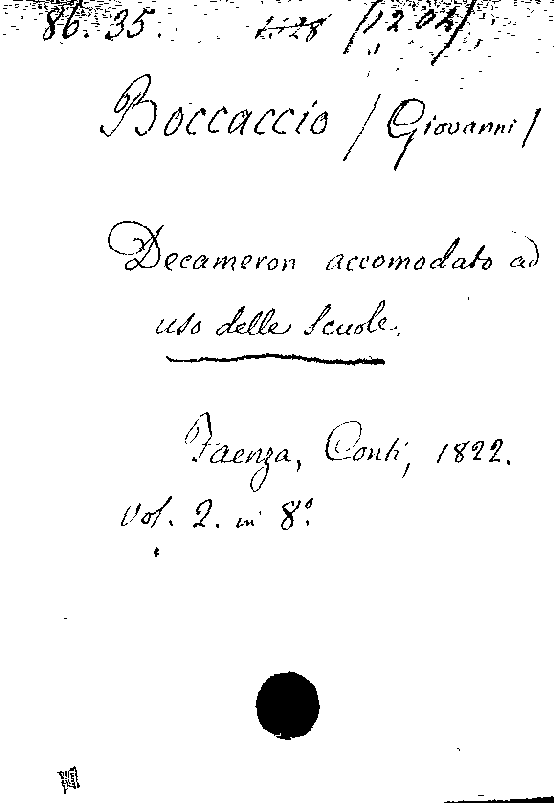 86. 35. (1204).
Boccaccio (Giovanni)
Decameron accomodato ad
uso delle Scuole.
Faenza, Conti, 1822.
vol. 2. in 8º.